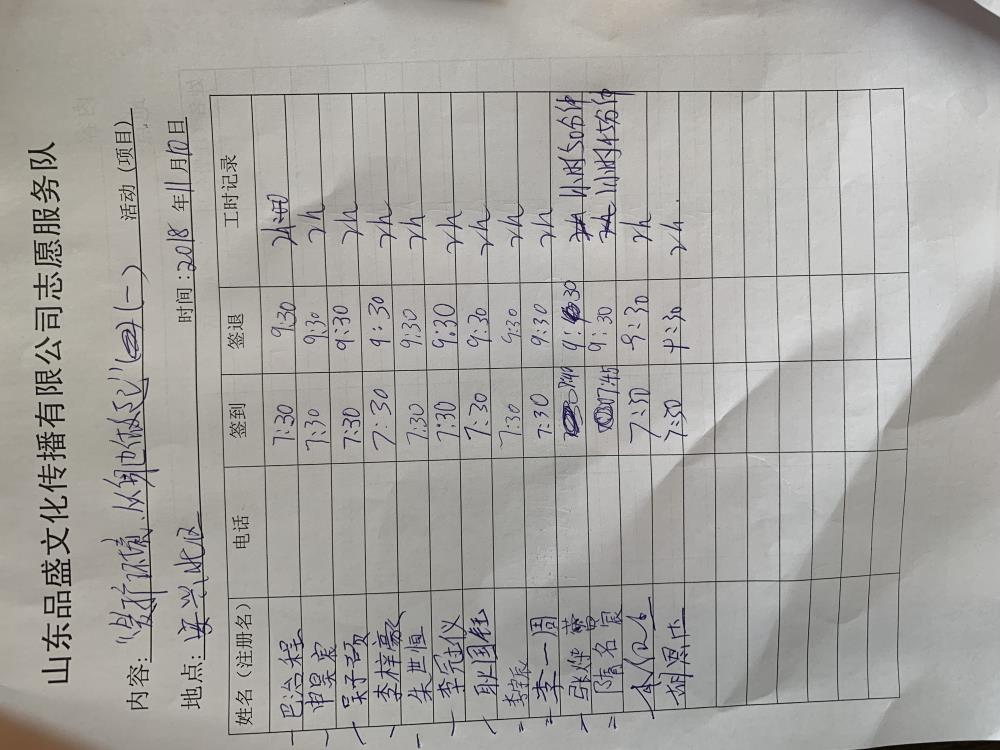 山东品盛文化传播有限公司志愿服务队
内容：“爱护环境，从身边做起”（一） 活动（项目）
地点：安兴北区 时间：2018年11月10日
姓名（注册名） 电话 签到 签退 工时记录
巴治程 7:30 9:30
申昊宸 7:30 9:30 2h
吴子硕 7:30 9:30 2h
李梓豪 7:30 9:30 2h
朱世恒 7:30 9:30 2h
李冠仪 7:30 9:30 2h
耿国钰 7:30 9:30 2h
李宇辰 7:30 9:30 2h
李一周 7:30 9:30 2h
7:40 9:30 1小时50分钟
隋名宸 7:45 9:30 1小时45分钟
7:30 9:30 2h
胡恩 7:30 9:30 2h